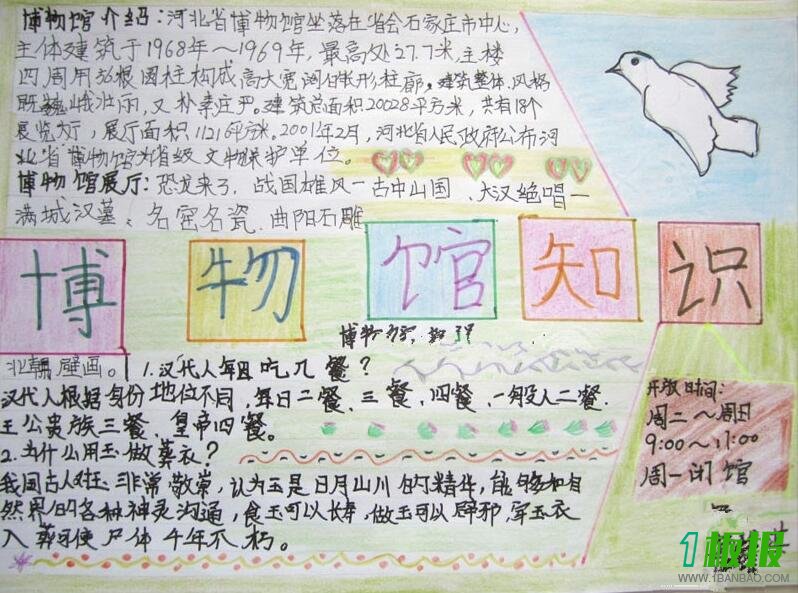 博物馆介绍：河北省博物馆坐落在省会石家庄市中心，
主体建筑于1968年～1969年，最高处27.7米，主楼
四周用 根圆柱构成高大宽阔的 形柱廊，建筑整体风格
既巍峨壮丽，又朴素庄严。建筑总面积20028平方米，共有18个
展览大厅，展厅面积 平方米。2001年2月，河北省人民政府公布河
北省博物馆为省级文物保护单位。
博物馆展厅：恐龙来了，战国雄风—古中山国、大汉绝唱—
满城汉墓、名窑名瓷、曲阳石雕
博 物 馆 知 识
北朝壁画。
1.汉代人每日吃几餐？
汉代人根据身份地位不同，每日二餐、三餐，四餐，一般人二餐.
王公贵族三餐，皇帝四餐。
2.为什么用玉做葬衣？
我国古人对玉非常敬崇，认为玉是日月山川的精华，能够和自
然界的各种神灵沟通，食玉可以长寿，做玉可以辟邪，穿玉衣
入葬可使尸体千年不朽。
开放时间：
周二～周日
9:00～17:00
周一闭馆
1板报
WWW.1BANBAO.COM